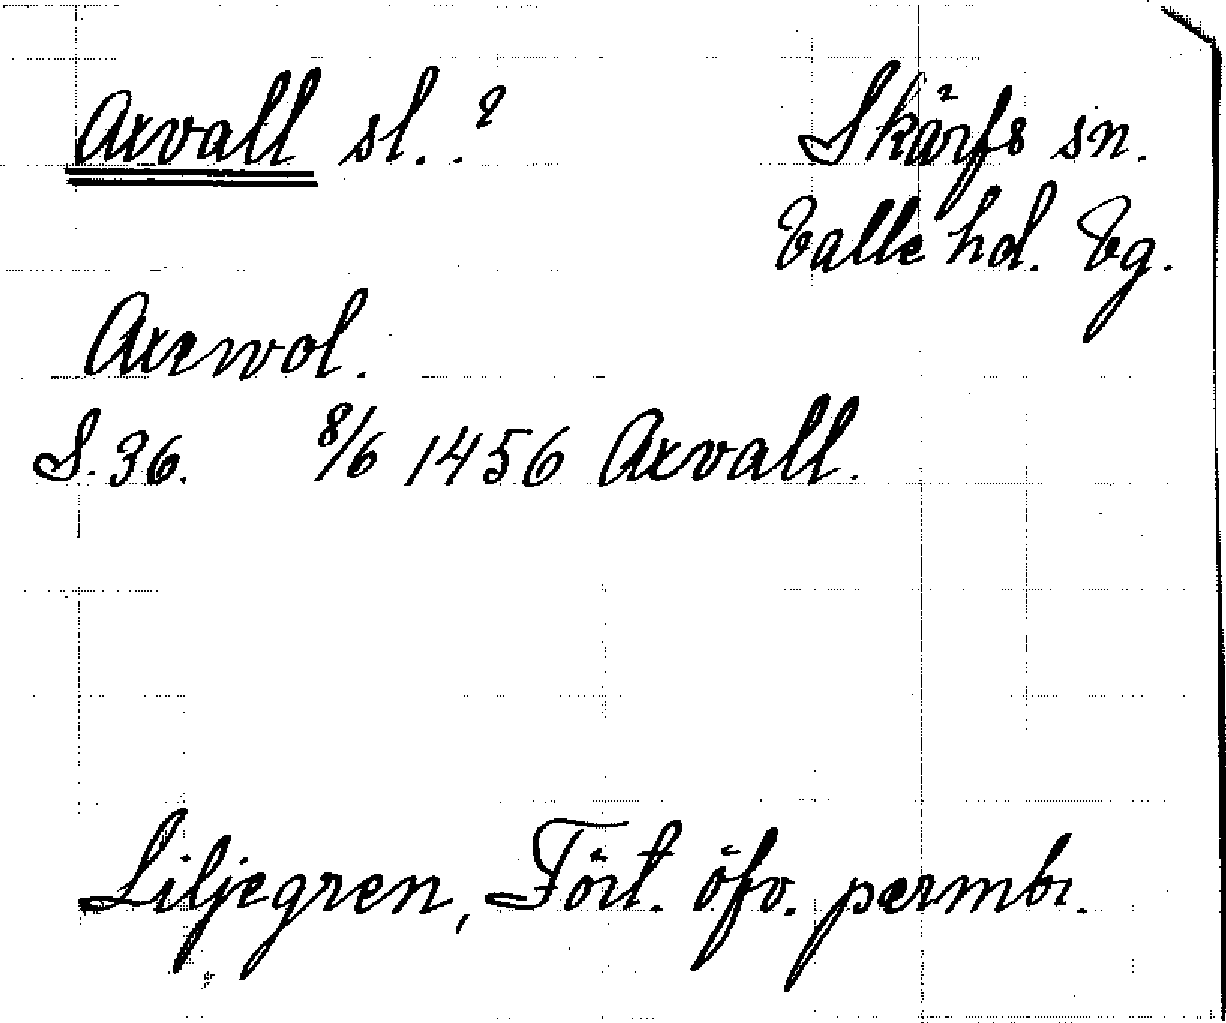 Axvall sl.?
Skärfs sn.
Valle hd. Vg.
Axewol.
S. 36. 8/6 1456 Axvall.
Liljegren, Fört. öfv. permbr.